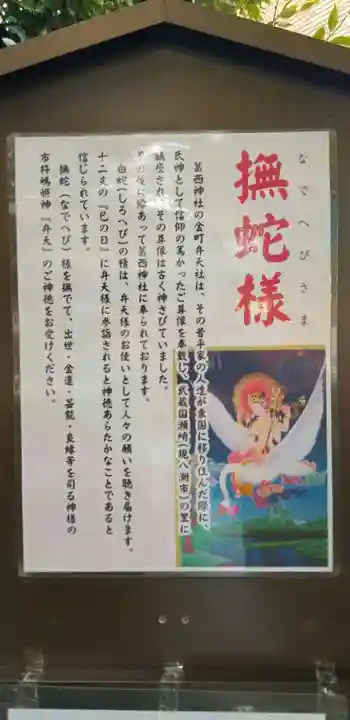 撫蛇様
なでへびさま
葛西神社の金町弁天社は、その昔平家の人達が東国に移り住んだ際に、
氏神として信仰の篤かったご尊像を奉戴し、武蔵国瀬崎(現八潮市)の里に
鎮座され、その尊像は古く神さびていました。
の後に縁あって葛西神社に奉られております。
白蛇(しろへび)の精は、弁天様のお使いとして人々の願いを聴き届けます。
十二支の『巳の日』に弁天様に参詣されると神徳あらたかなことであると
信じられています。
撫蛇(なでへび)様を撫でて、出世・金運・芸能・良縁等を司る神様の
市杵嶋姫神『弁天』のご神徳をお受けください。